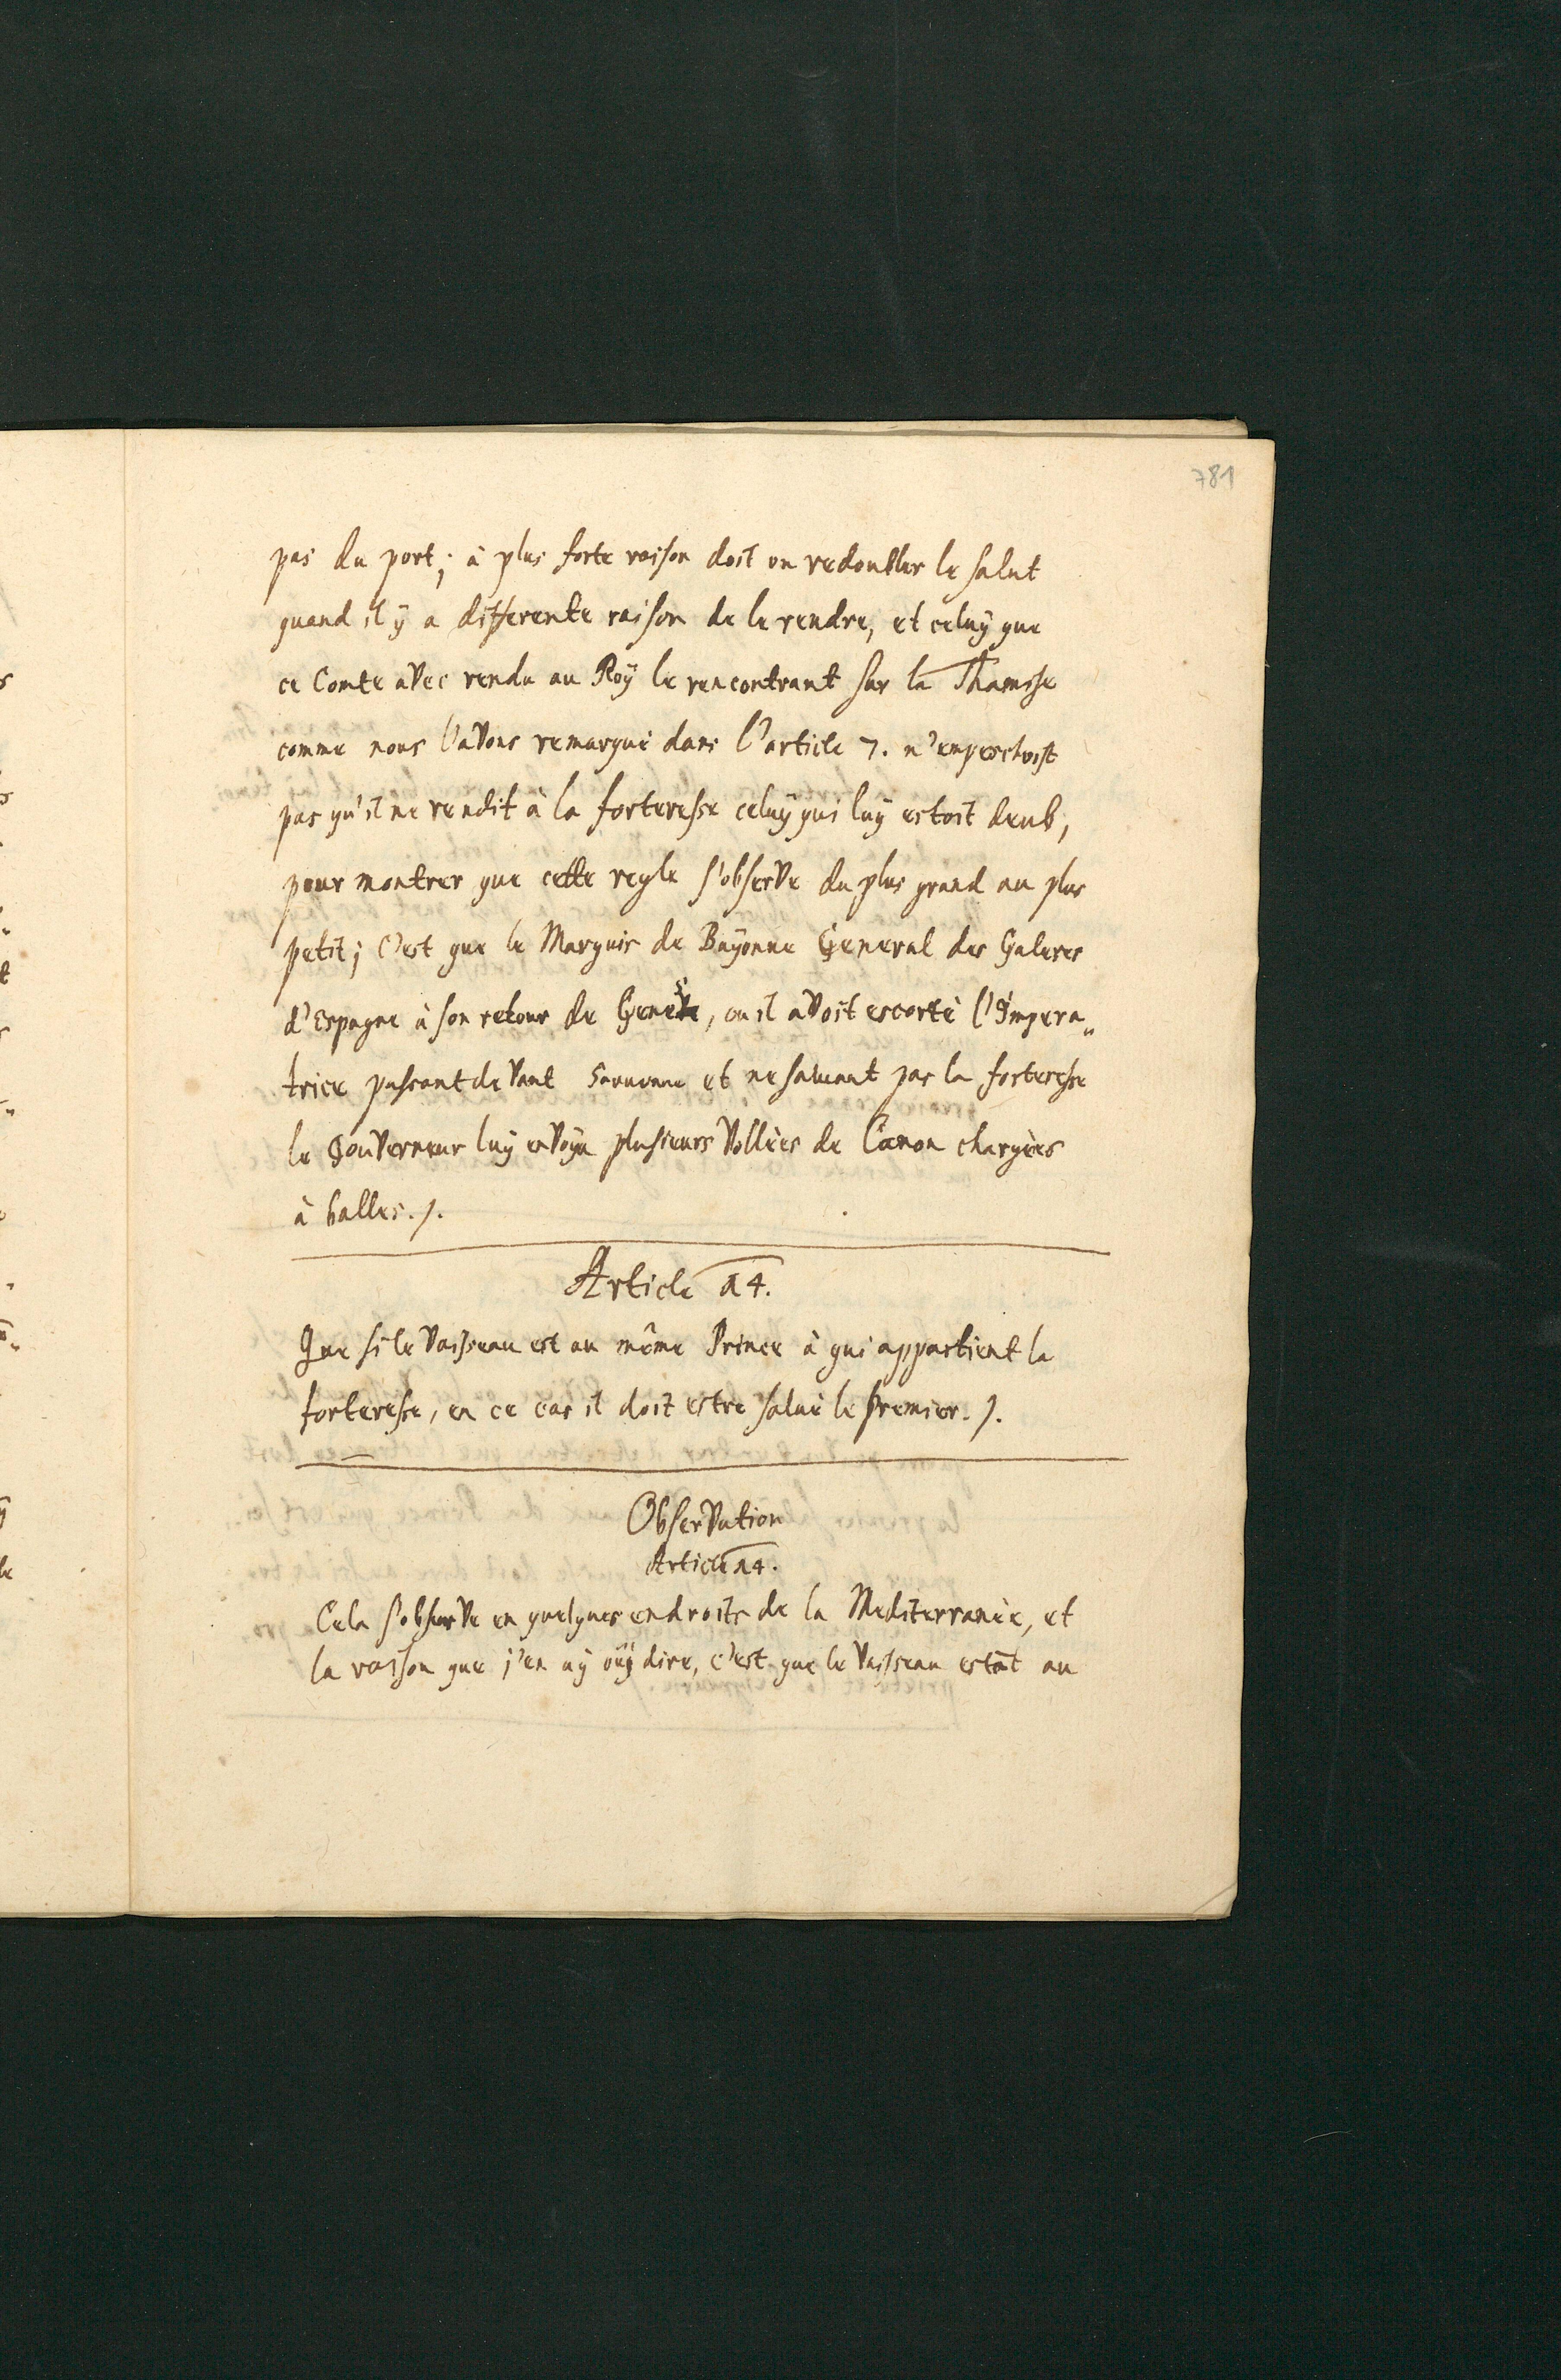 781
pas du port; à plus forte raison doit on redoubler le salut
quand il ÿ a differente raison de le rendre, et celuÿ que
ce Comte avec rendu au Roÿ le rencontrant sur la Thamise
comme nous l'avons remarqué dans l'article 7. n'empeschoist
pas qu'il ne rendit à la forteresse celuÿ qui luÿ estoit deub,
pour montrer que cette regle s'observe du plus grand au plus
petit; C'est que le Marquis de Baÿonne General des Galeres
d'Espagne à son retour de , ou il avoit escorté l'Impera„
trice passant devant et ne saluant pas la forteresse
le Gouverneur luÿ envoÿa plusieurs Vollées de Canon chargées
à balles./.
Article 14.
Que si le Vaisseau est au même Prince à qui appartient la
forteresse, en ce cas il doit estre salué le premier./.
Observation
Article 14.
Cela s'observe en quelques endroits de la Mediterranée, et
la raison que j'en aÿ oüÿ dire, c'est que le Vaisseau estāt au